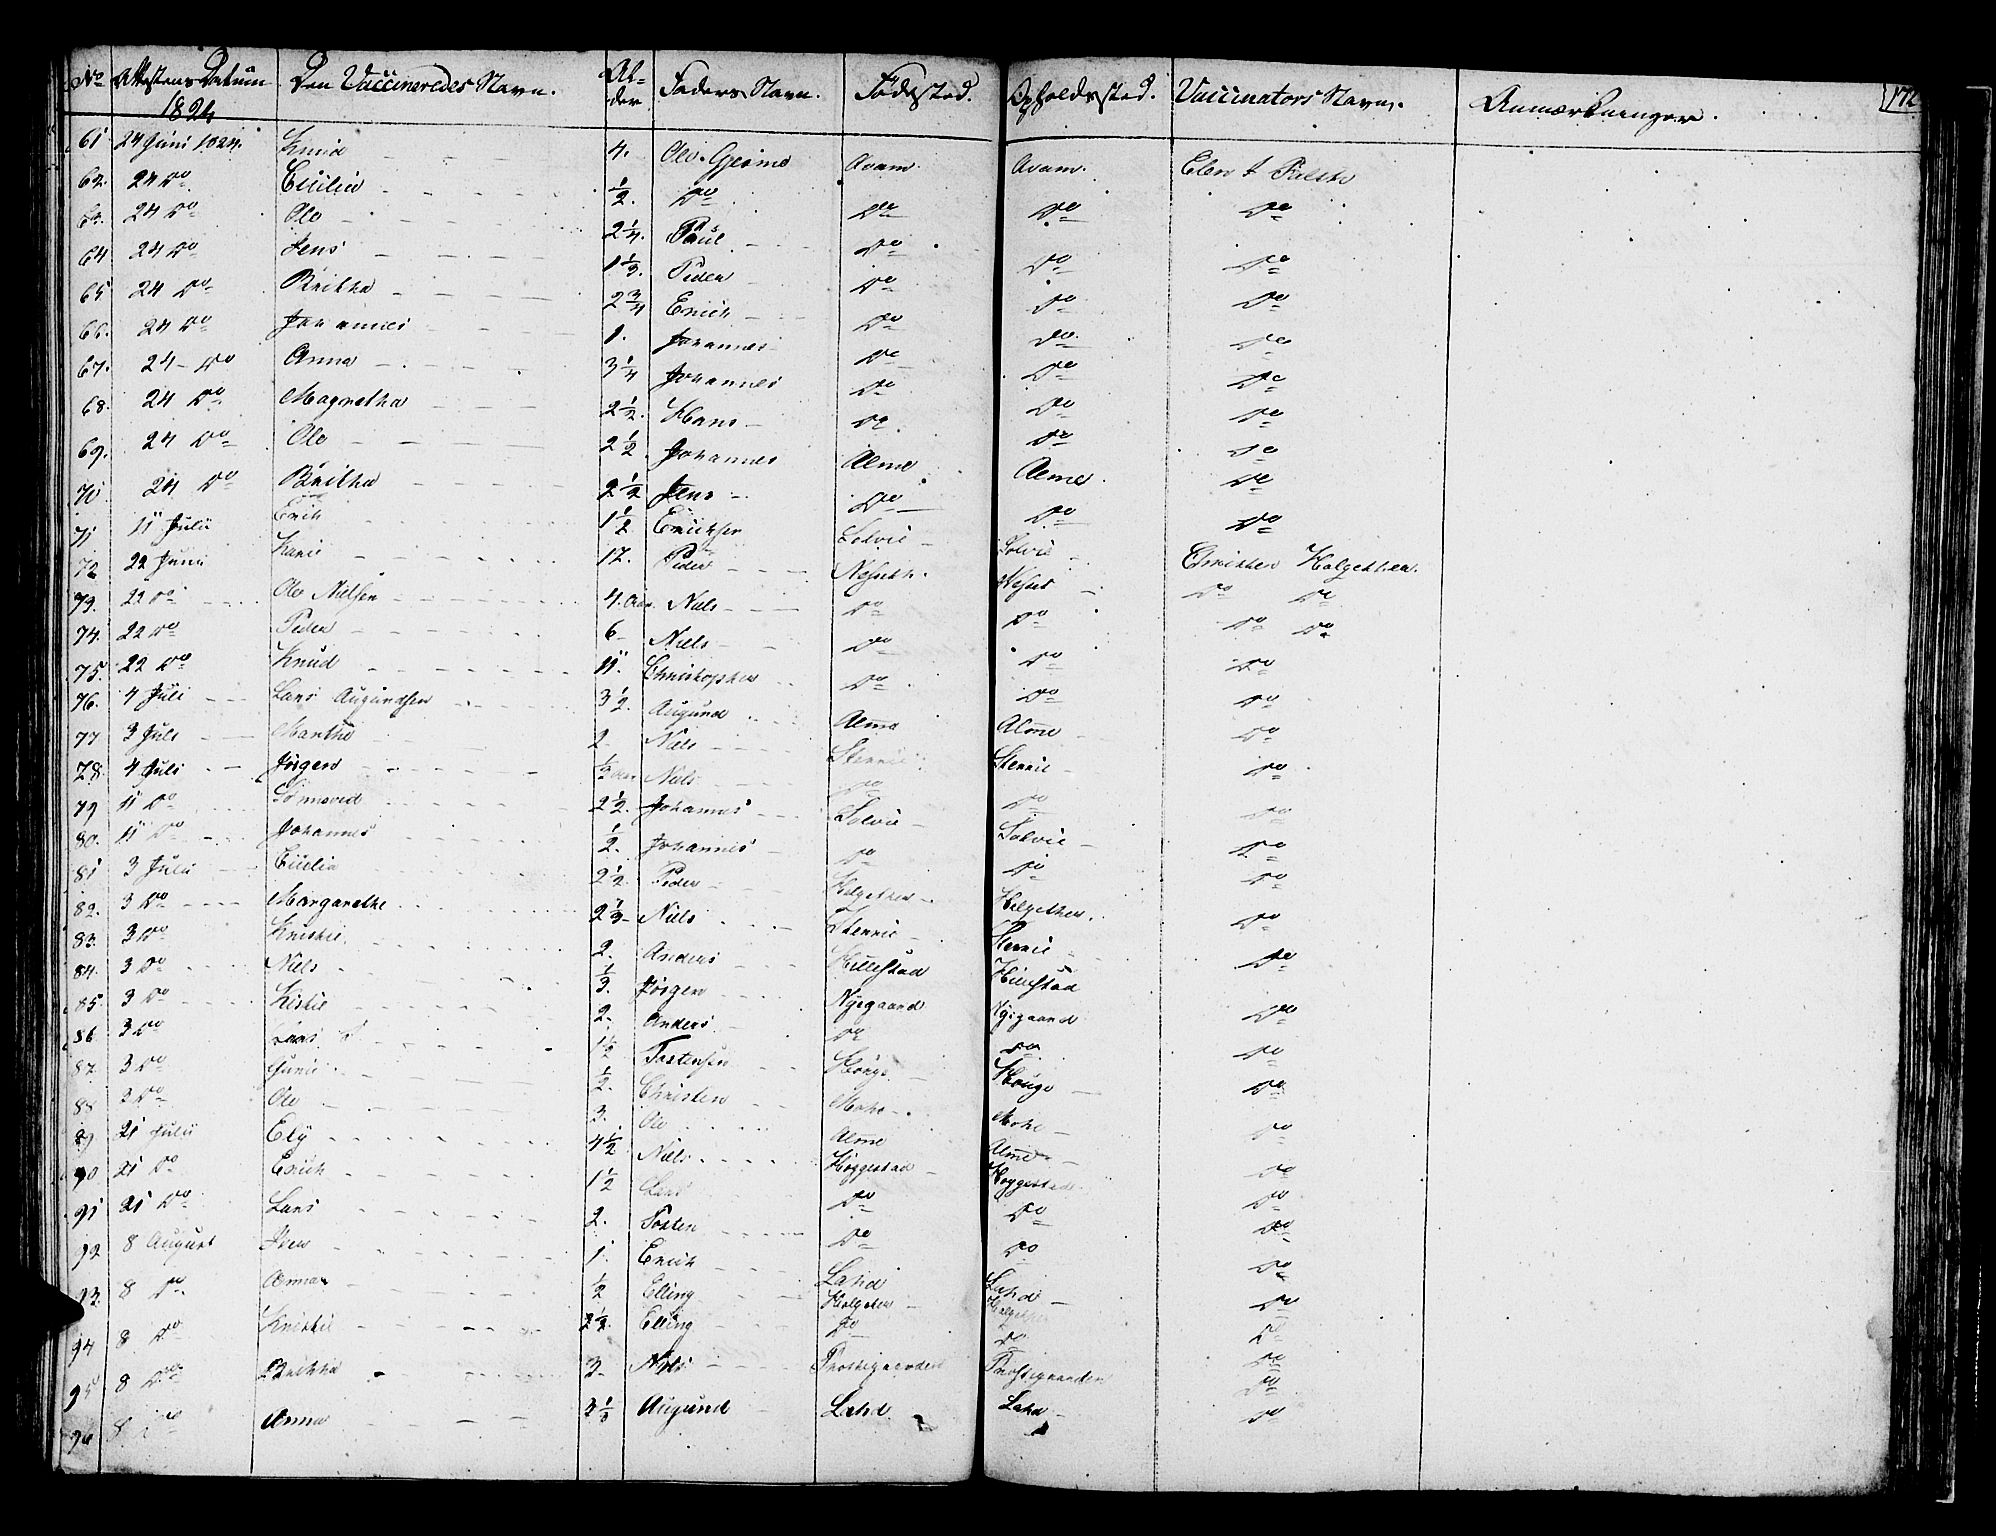 No Attestens Datum Den Vaccineredes Navn. Al- Faders Navn. Fødested. Opholdssted. Vaccinators Navn. Anmærkninger. 172
1824 der
61 24 Juni 1824. Knud 4. Ole Avam. Avam. Elen
62. 24 Do Cicilia 1/2. Do Do Do Do
63. 24 Do Ole 2 1/4. Paul Do Do Do
64 24 Do Jens 1 1/3. Peder Do Do Do
65 24 Do Britha 2 3/4 Erich Do Do Do
66. 24 Do Johannes 1. Johannes Do Do Do
67. 24 Do Anna 3 1/4 Johannes Do Do Do
68. 24 Do Magnetha 2 1/2. Hans Do Do Do
69. 24 Do Ole 2 1/2 Johannes Alme Alme Do
70 24 Do Britha 2 1/2 Jens Do Do Do
71 11 Julii Erich 1 1/2 Erichsen Solvie Solvie
72 22 Juni Kari 12. Peder Christen Holgethen.
73. 22 Do Ole Nielsen 4. Aar. Niels Do Do Do Do
74. 22 Do Peder 6 Niels Do Do Do
75. 22 Do Knud 11. Christopher Do Do Do
76. 4 Juli Lars Augundsen 3 1/2. Augund Alme Alme Do
77 3 Juli Marthe 2. Niels Stennie Stennie Do
78. 4 Juli Jørgen 1/2 Aar Niels Do Do Do
79 11 Do 2 1/2. Johannes Solvie Solvie Do
80. 11 Do Johannes 1/2. Johannes Do Do Do
81 3 Julii Cicilia 2 1/2. Peder Holgethen Holgethen. Do
82. 3 Do Margarethe 2 1/3 Niels Stennie Stennie Do
83. 3 Do Kristie 2. Anders Hillestad Hillestad Do
84. 3 Do Niels 1/3. Jørgen Nygaard Nygaard Do
85. 3 Do Kistie 2. Anders Do Do Do
86 3 Do Lars 1 1/2 Tostensen Houge Houge Do
87. 3 Do Guni 1/2. Christen Mohe Mohe Do
88 3 Do Ole 3. Ole Alme Alme Do
89 21 Julii Ely 4 1/2 Niels Høggestad Høggestad Do
90 21 Do Erich 1 1/2 Lars Do Do Do
91 21 Do Lars 2. Tosten Do Do Do
92 8 August Iver 1. Erich Lahd Lahd Do
93. 8 Do Anna 1/2 Elling Holgeten Do
94 8 Do Kristie 2 1/2. Elling Do Do Do
95 8 Do Britha 3 Niels Prostigaarden Prostigaarden Do
96 8 Do Anna 3 1/3 Augund Lahd Lahd Do